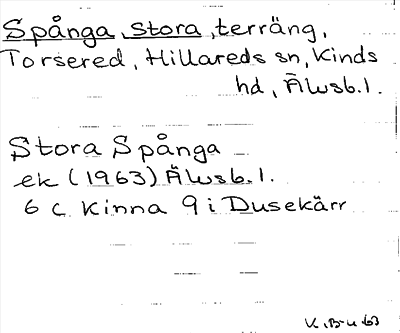 Spånga, stora, terräng,
Torsered, Hillareds sn, Kinds
hd, Älvsb. l.
Stora Spånga
ek (1963) Älvsb. l.
6 C Kinna 9 i Dusekärr